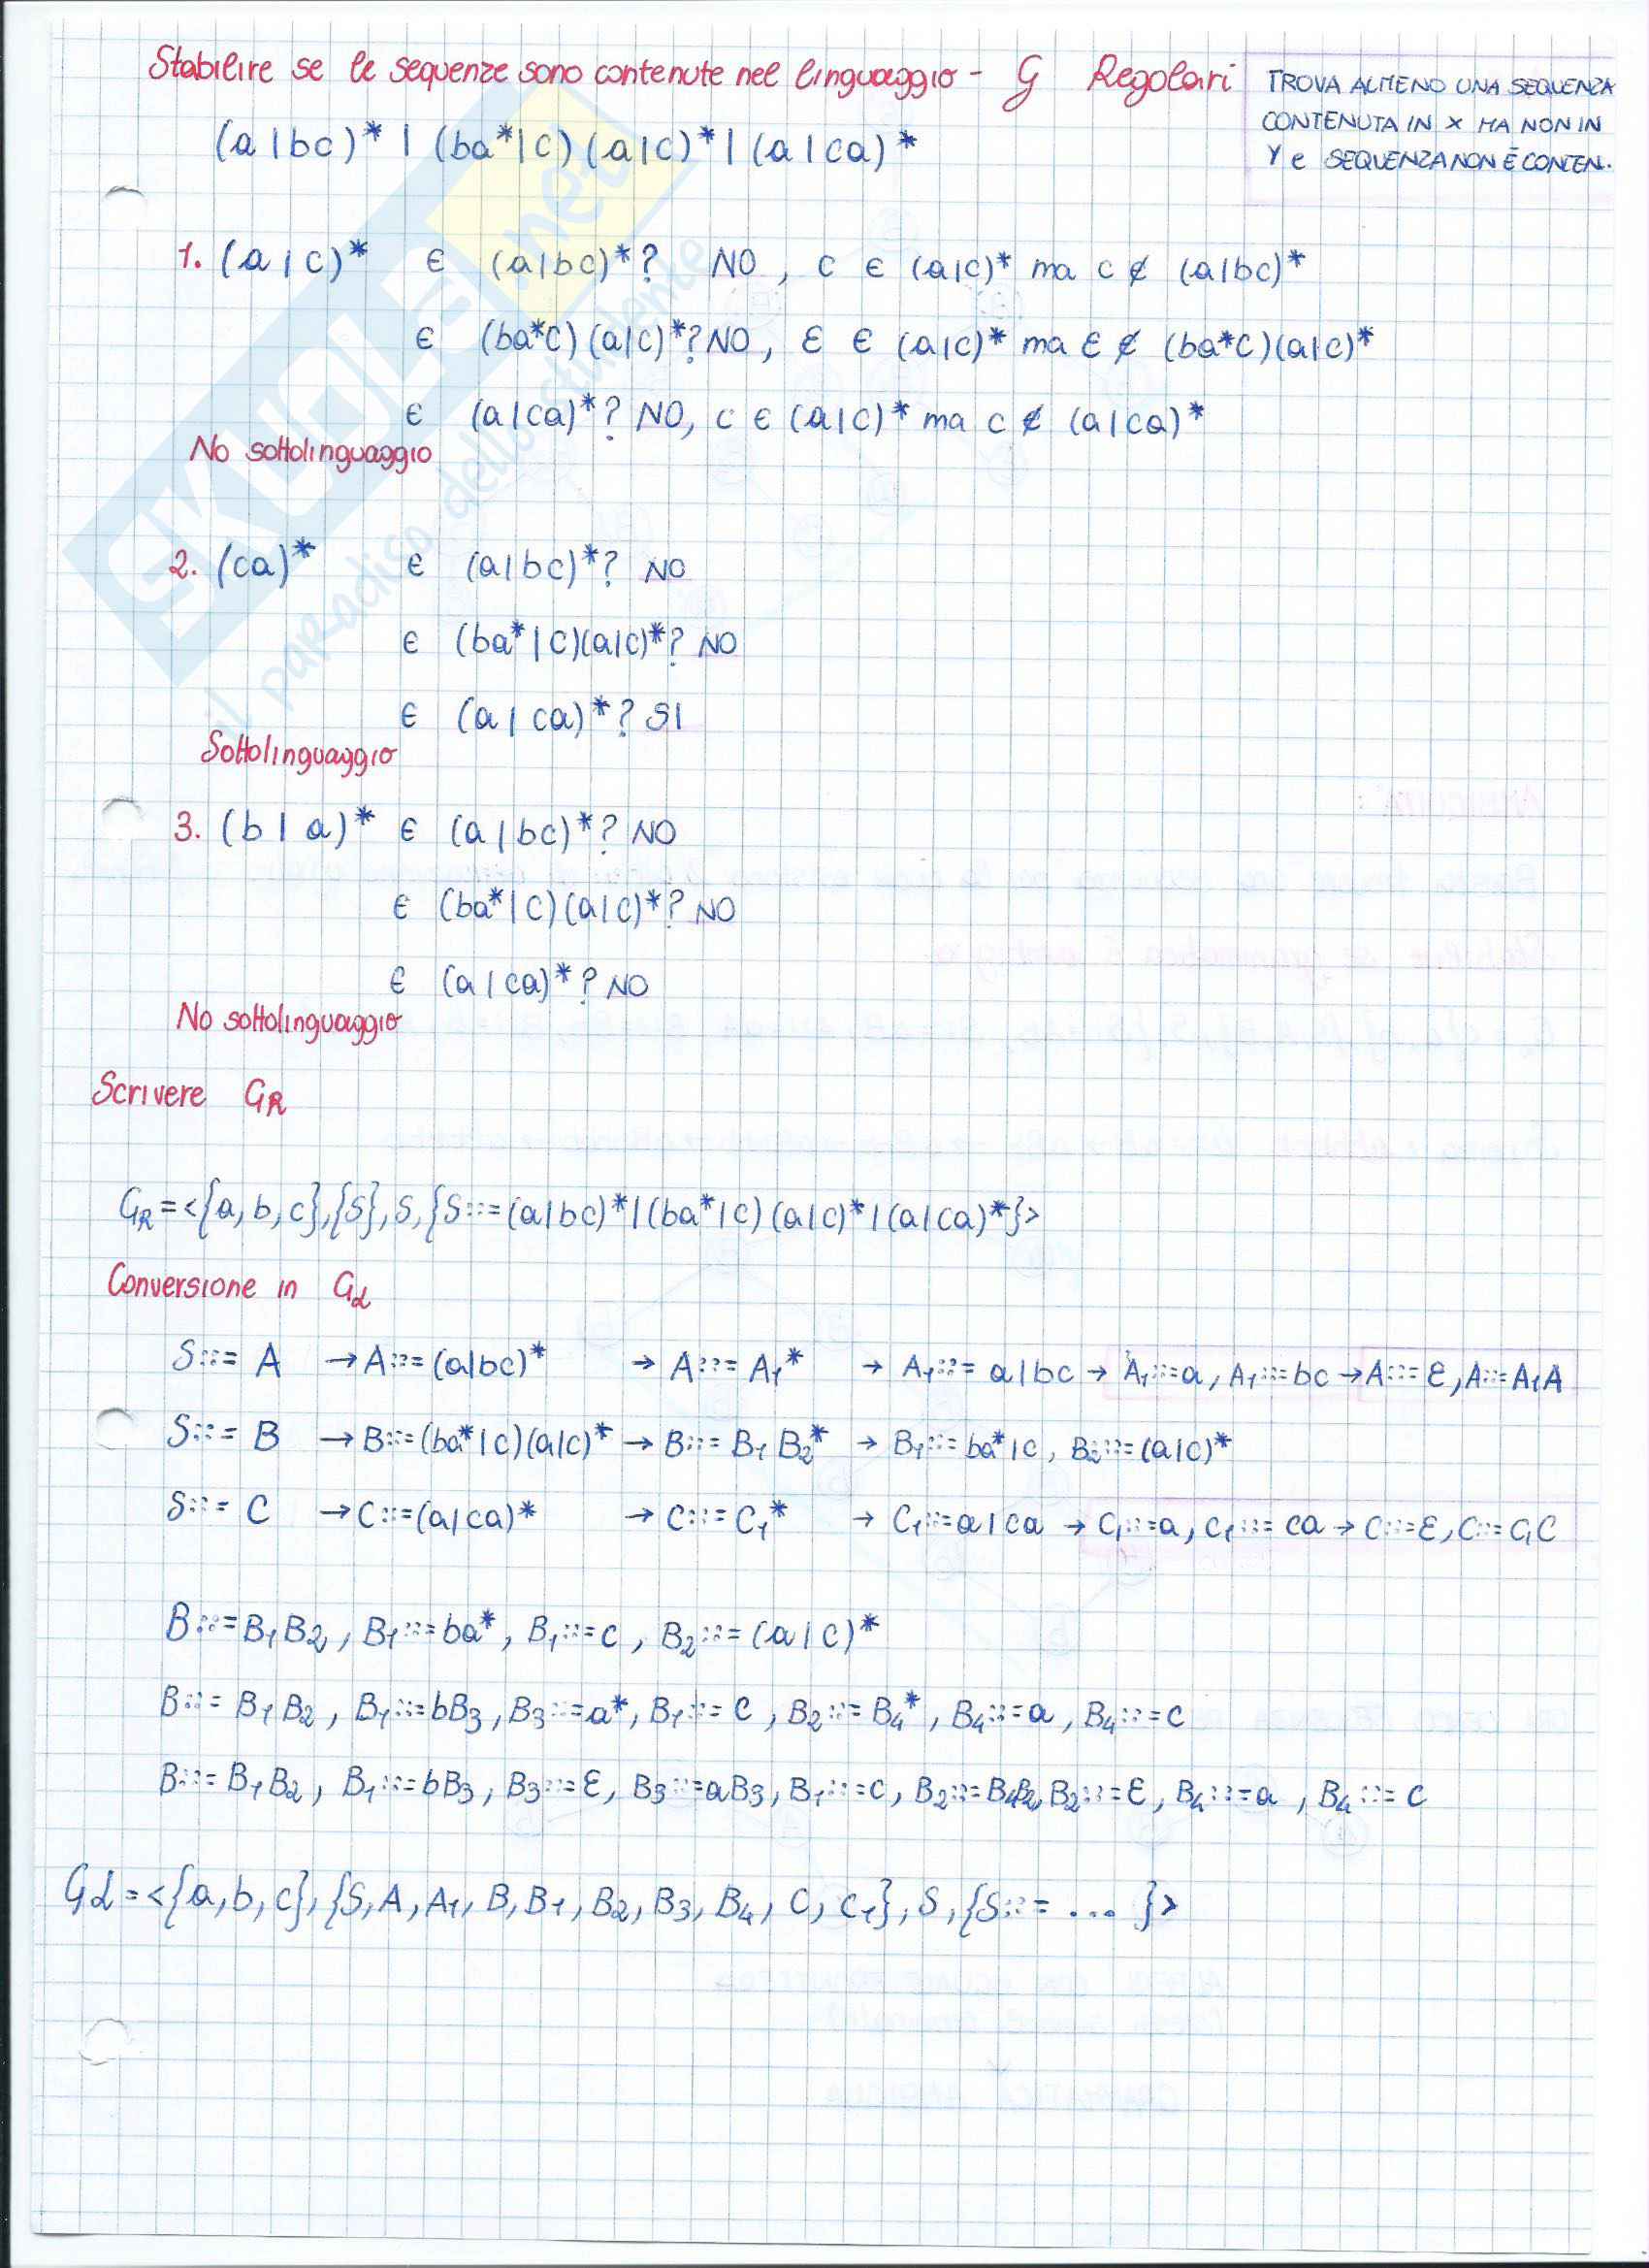 Stabilire se le sequenze sono contenute nel linguaggio - G Regolari
TROVA ALMENO UNA SEQUENZA
CONTENUTA IN X MA NON IN
Y e SEQUENZA NON È CONTEN.
(a|bc)* | (ba*|c)(a|c)* | (a|ca)*
1. (a|c)* ∈ (a|bc)*? NO, c ∈ (a|c)* ma c ∉ (a|bc)*
∈ (ba*c)(a|c)*? NO, ε ∈ (a|c)* ma ε ∉ (ba*c)(a|c)*
∈ (a|ca)*? NO, c ∈ (a|c)* ma c ∉ (a|ca)*
No sottolinguaggio
2. (ca)* ∈ (a|bc)*? NO
∈ (ba*|c)(a|c)*? NO
∈ (a|ca)*? SI
Sottolinguaggio
3. (b|a)* ∈ (a|bc)*? NO
∈ (ba*|c)(a|c)*? NO
∈ (a|ca)*? NO
No sottolinguaggio
Scrivere GR
GR=<{a,b,c},{S},S,{S::=(a|bc)*|(ba*|c)(a|c)*|(a|ca)*}>
Conversione in GL
S::= A → A::=(a|bc)* → A::= A1* → A1::= a|bc → A1::=a, A1::=bc → A::=ε, A::=A1A
S::= B → B::=(ba*|c)(a|c)* → B::= B1 B2* → B1::= ba*|c, B2::=(a|c)*
S::= C → C::=(a|ca)* → C::= C1* → C1::=a|ca → C1::=a, C1::= ca → C::=ε, C::=C1C
B::=B1B2, B1::=ba*, B1::=c, B2::=(a|c)*
B::= B1B2, B1::=bB3, B3::=a*, B1::= c, B2::= B4*, B4::=a, B4::=c
B::= B1B2, B1::=bB3, B3::=ε, B3::=aB3, B1::=c, B2::=B4B2, B2::=ε, B4::=a, B4::= c
GL=<{a,b,c},{S,A,A1,B,B1,B2,B3,B4,C,C1},S,{S::= ... }>
SKUOLA.net
il paradiso dello studente